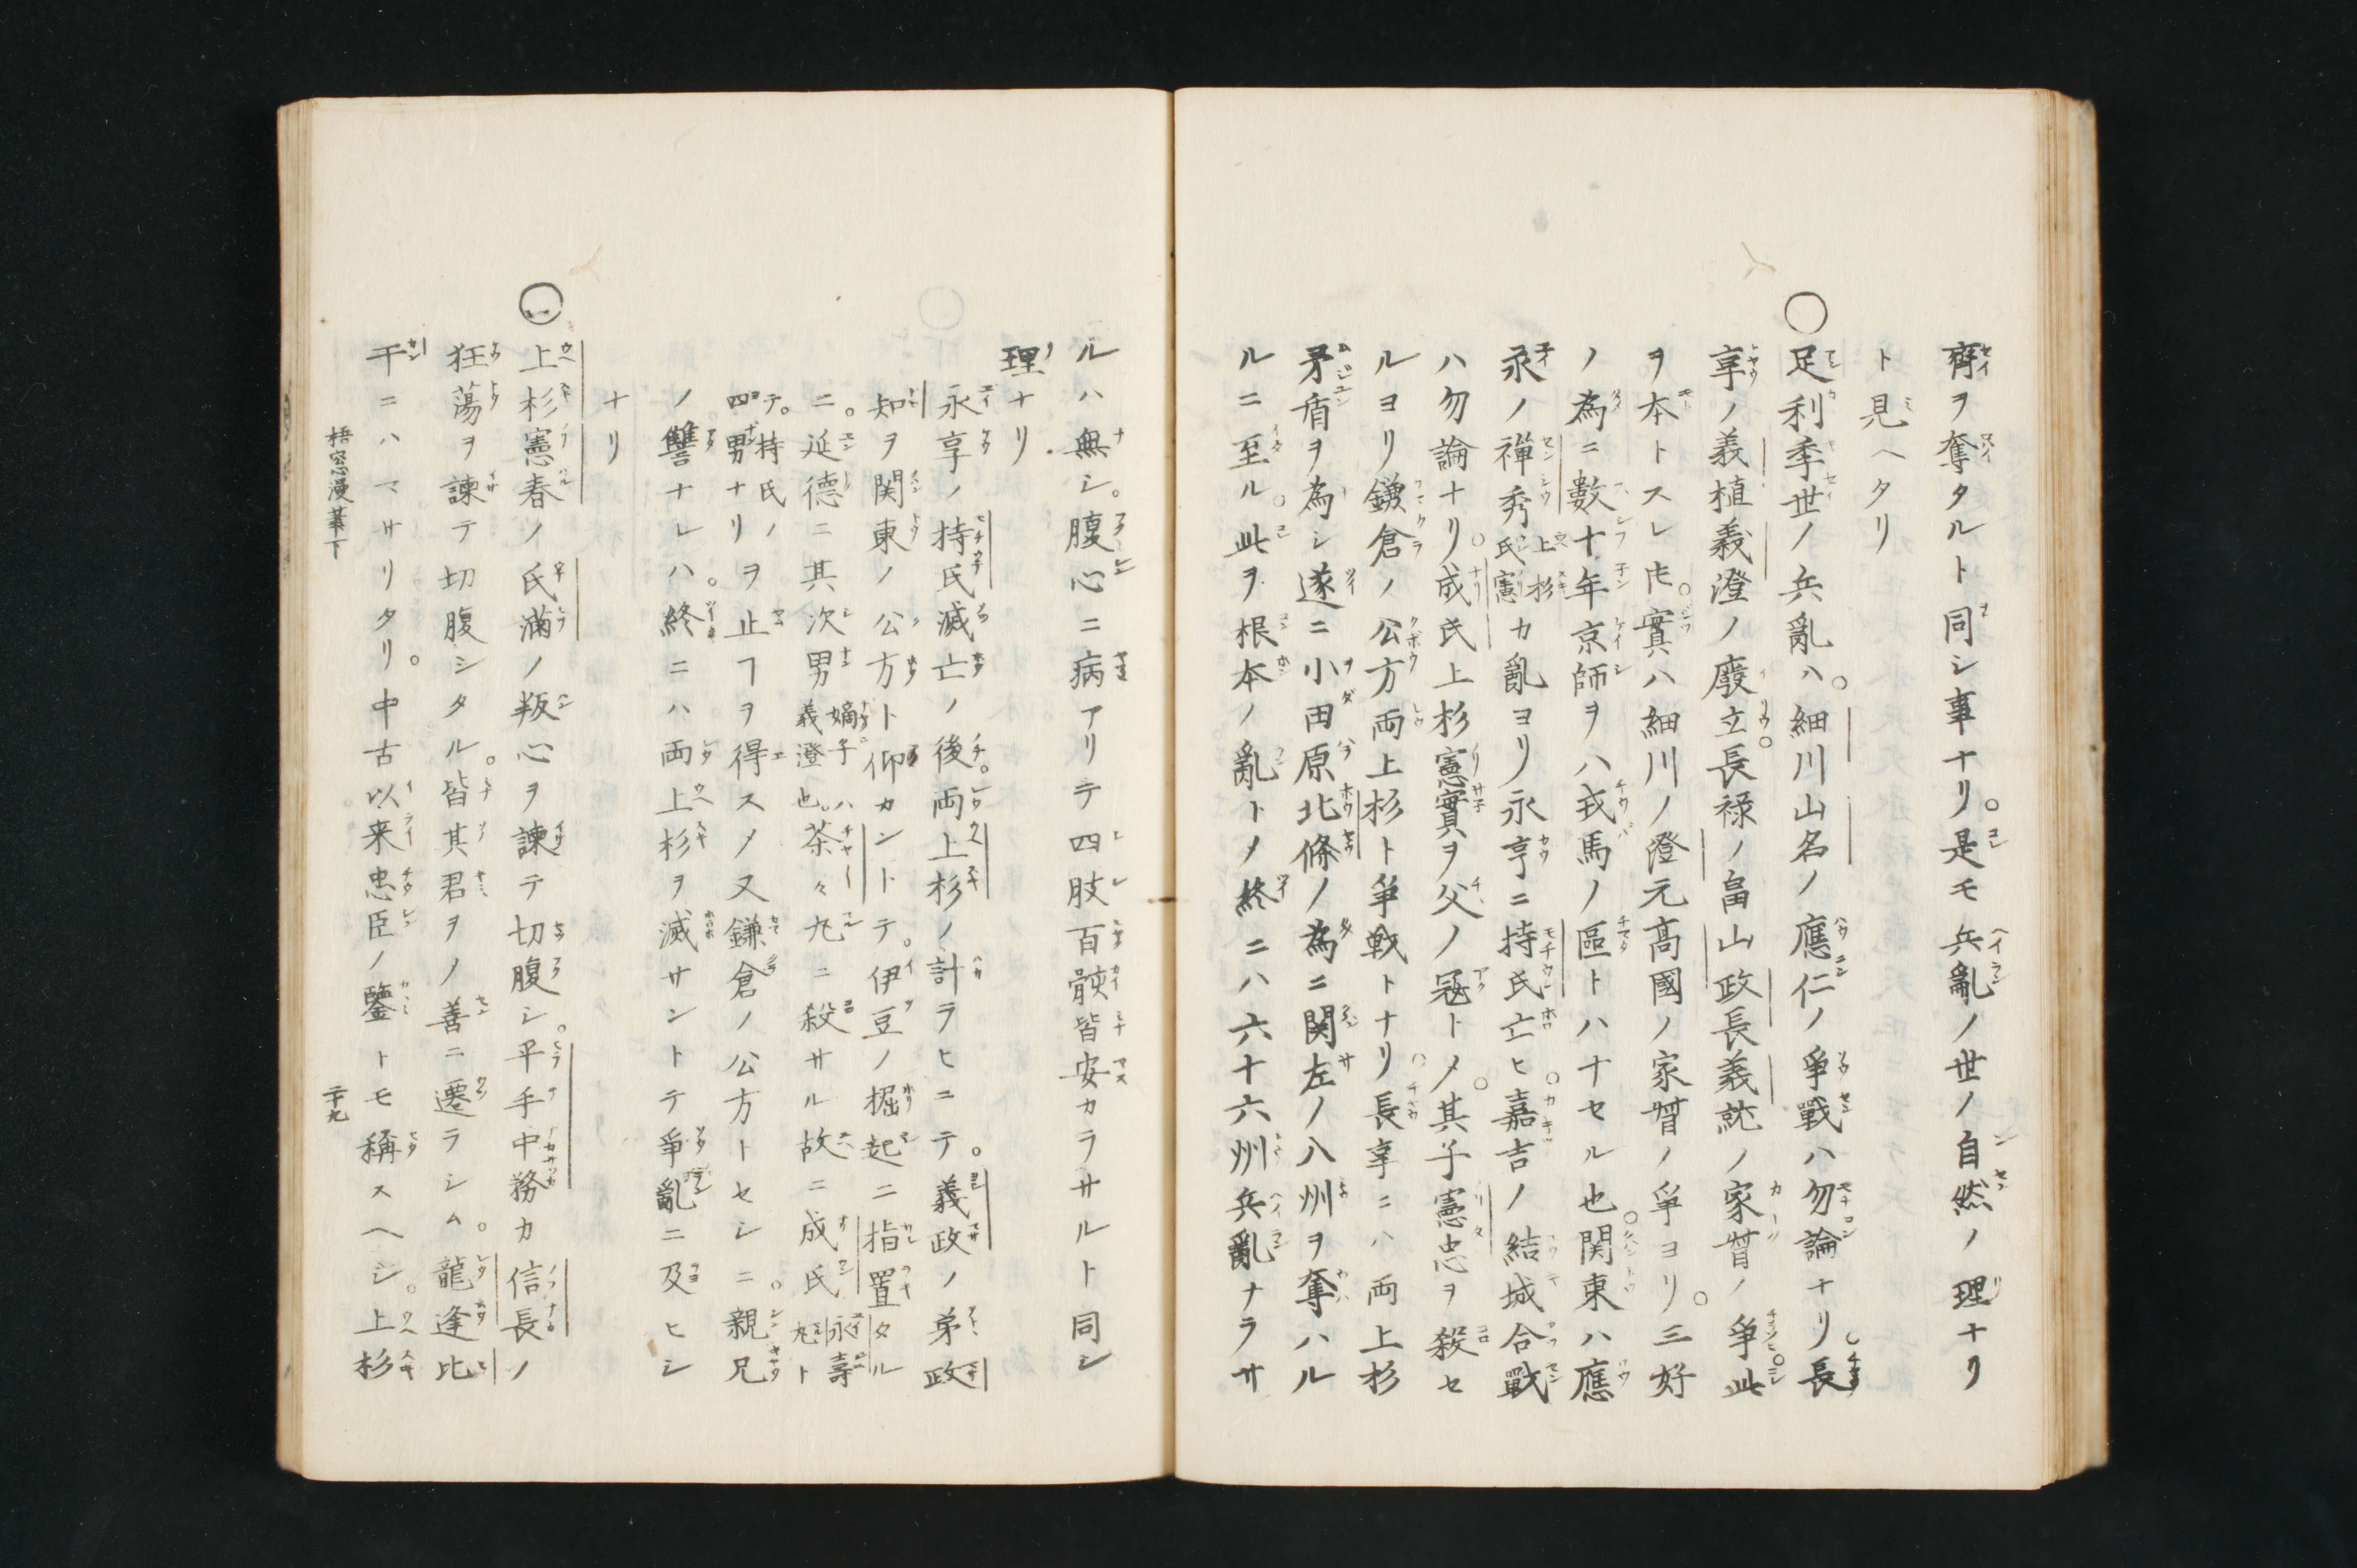 齊ヲ奪タルト同シ事ナリ。是モ兵亂ノ世ノ自然ノ理ナリ
ト見ヘタリ
○足利季世ノ兵亂ハ。細川山名ノ應仁ノ爭戰ハ勿論ナリ。長
享ノ義植義澄ノ廢立。長禄ノ畠山政長義就ノ家督ノ爭。此
ヲ本トスレ𪜈。實ハ細川ノ澄元高國ノ家督ノ爭ヨリ。三好
ノ為ニ數十年京師ヲハ戎馬ノ區トハナセル也。関東ハ應
永ノ禅秀上杉氏憲カ亂ヨリ永享ニ持氏亡ヒ。嘉吉ノ結城合戰
ハ勿論ナリ。成氏上杉憲實ヲ父ノ冦トメ。其子憲忠ヲ殺セ
ルヨリ鎌倉ノ公方両上杉ト爭戦トナリ長享ニハ両上杉
矛盾ヲ為シ遂ニ小田原北條ノ為ニ関左ノ八州ヲ奪ハル
ルニ至ル。此ヲ根本ノ亂トメ終ニハ六十六州兵亂ナラサ
ルハ無シ。腹心ニ病アリテ四肢百骸皆安カラサルト同シ
理ナリ
永享ノ持氏滅亡ノ後。両上杉ノ計ラヒニテ。義政ノ弟政
知ヲ関東ノ公方ト仰カントテ。伊豆ノ堀起ニ指置タル
ニ。延德ニ其次男嫡子ハ義澄也。茶々丸ニ殺サル故ニ成氏永壽丸ト
テ。持氏ノ四男ナリヲ止ヿヲ得スメ又鎌倉ノ公方トセシニ。親兄
ノ讐ナレハ。終ニハ両上杉ヲ滅サントテ爭亂ニ及ヒシ
ナリ
○上杉憲春ノ氏滿ノ叛心ヲ諫テ切腹シ。平手中務カ信長ノ
狂蕩ヲ諫テ切腹シタル。皆其君ヲノ善ニ遷ラシム。龍逢比
干ニハマサリタリ。中古以来忠臣ノ鑒トモ稱スヘシ。上杉
梧窓漫筆下
二十九